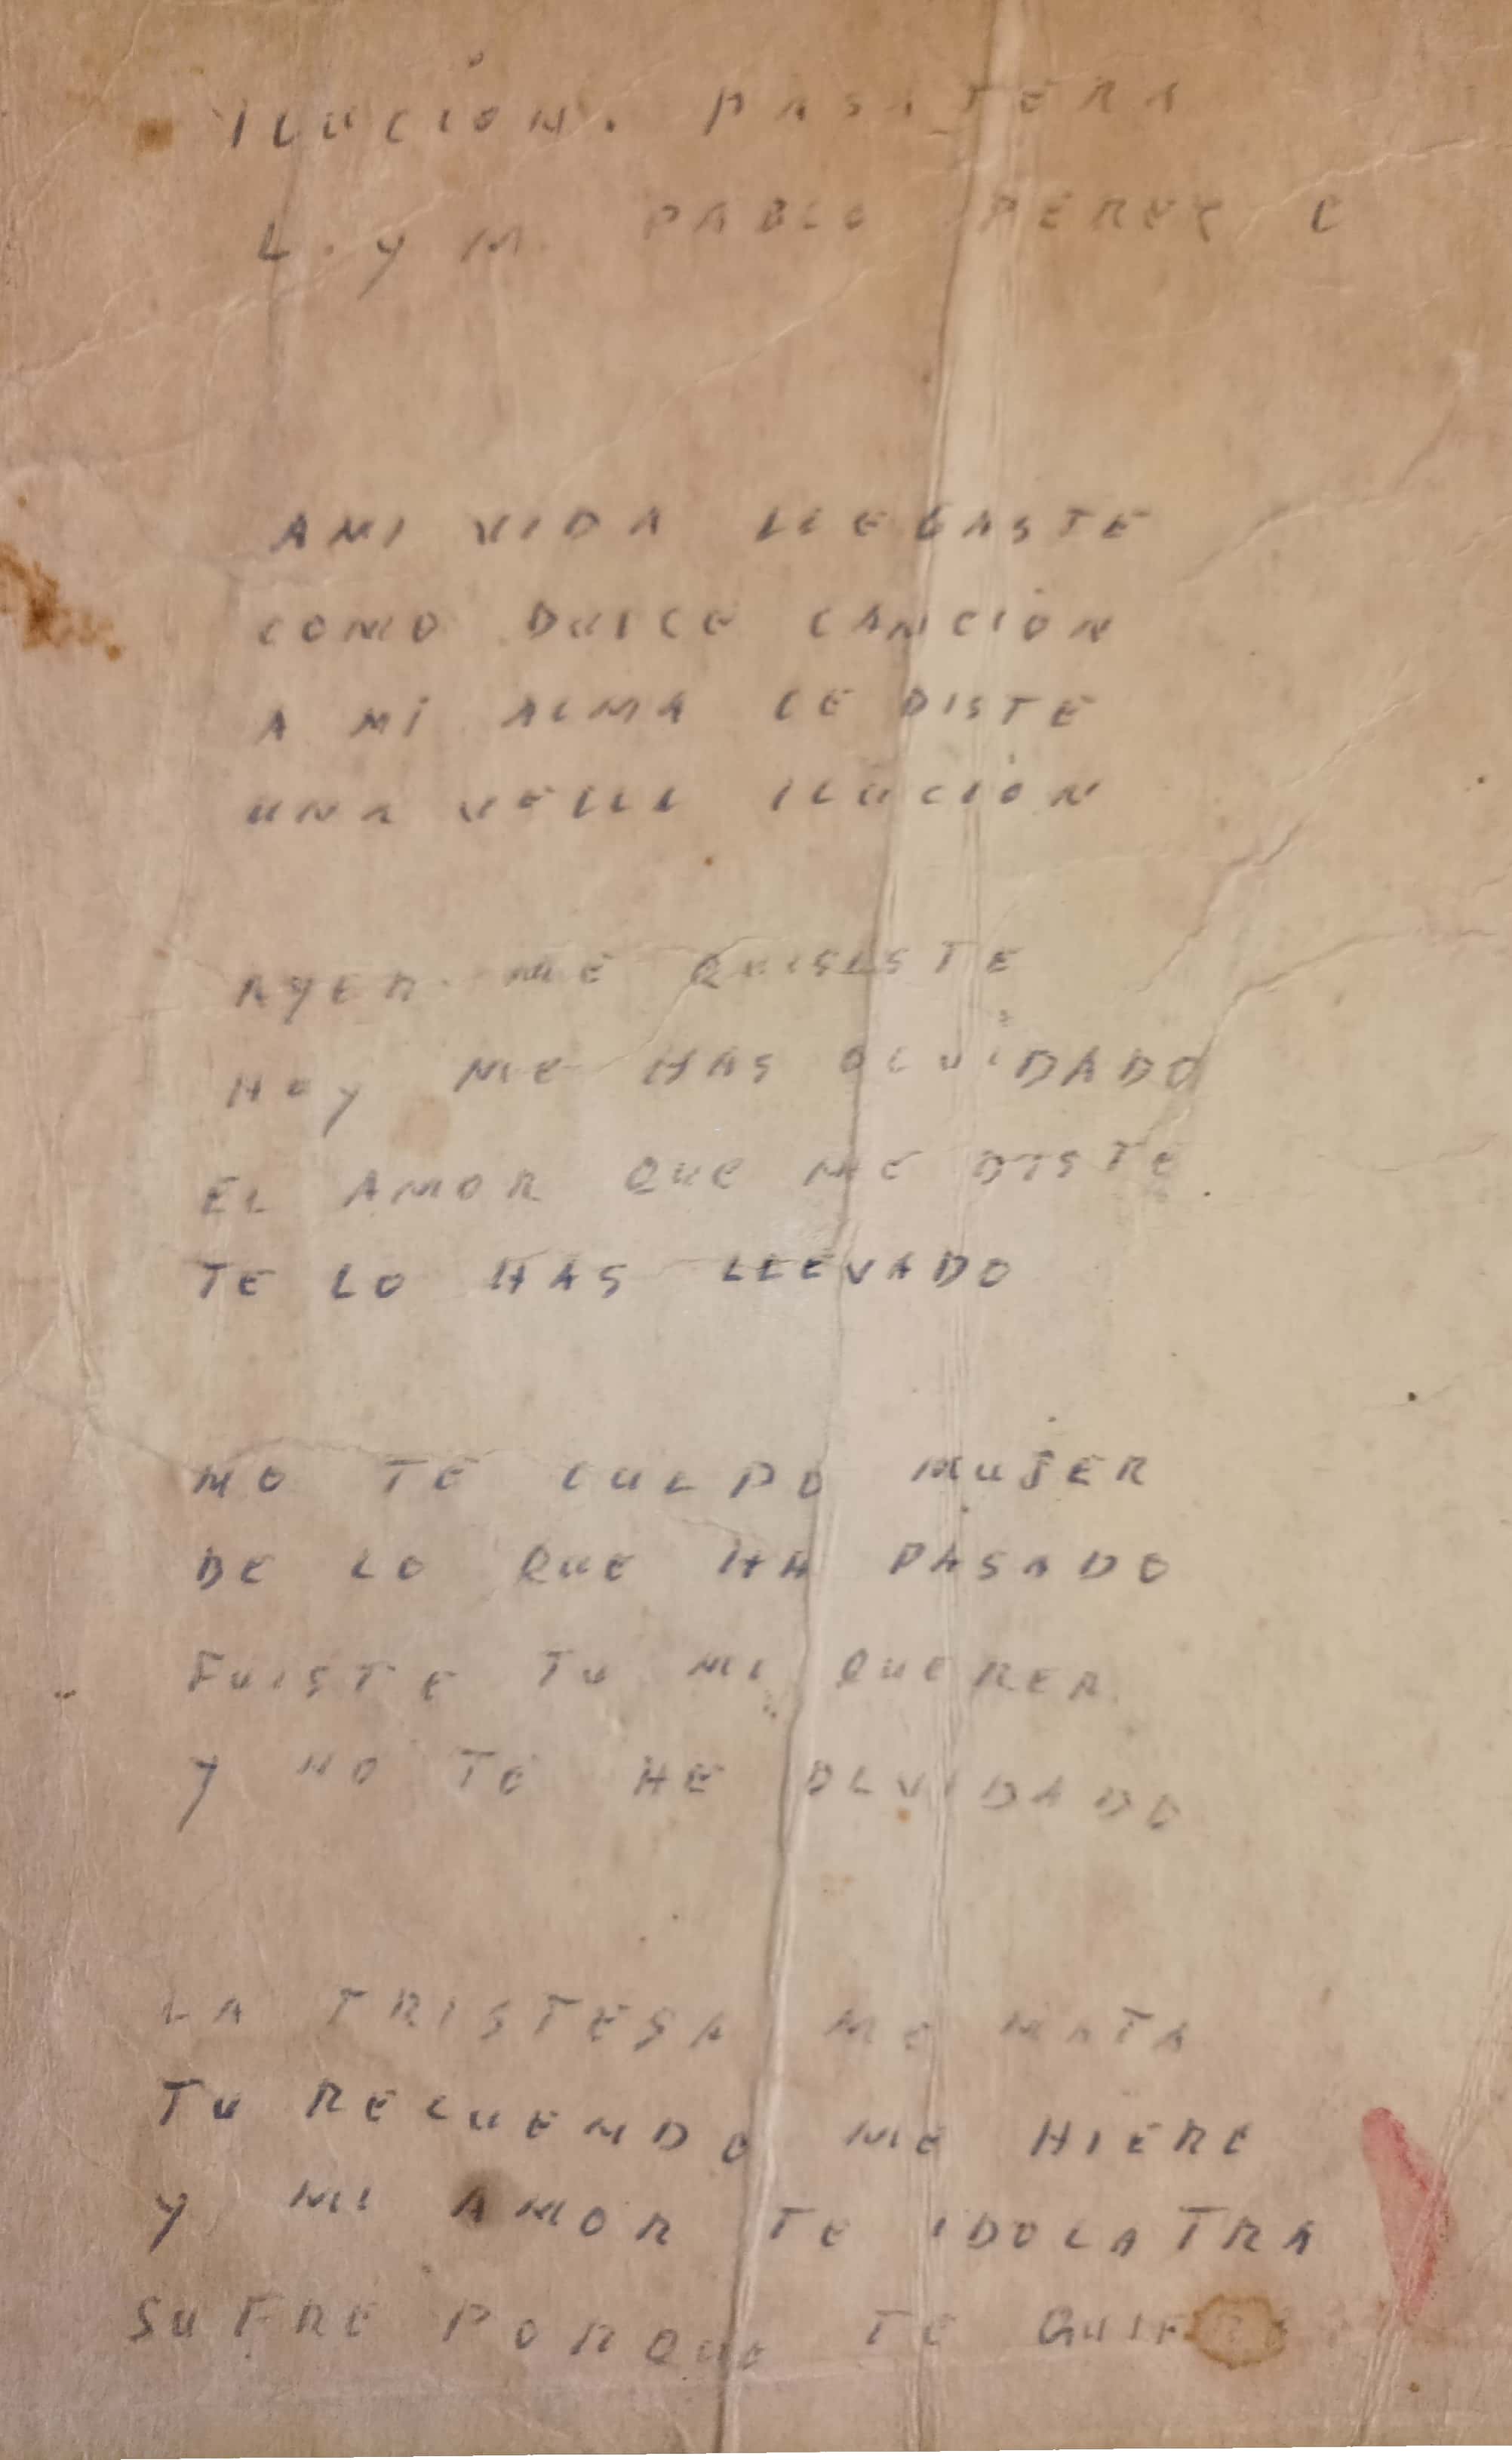 ILUCIÓN. PASATERA
L. Y M. PABLO PEREZ C
AMI VIDA LLEGASTE
COMO DULCE CANCIÓN
A MI ALMA LE DISTE
UNA VELLA ILUCIÓN
AYER ME QUISISTE
HOY ME HAS OLVIDADO
EL AMOR QUE ME DISTE
TE LO HAS LLEVADO
NO TE CULPO MUJER
DE LO QUE HA PASADO
FUISTE TU MI QUERER
Y NO TE HE OLVIDADO
LA TRISTESA ME MATA
TU RECUERDO ME HIERE
Y MI AMOR TE IDOLATRA
SUFRE PORQUE TE QUIERE